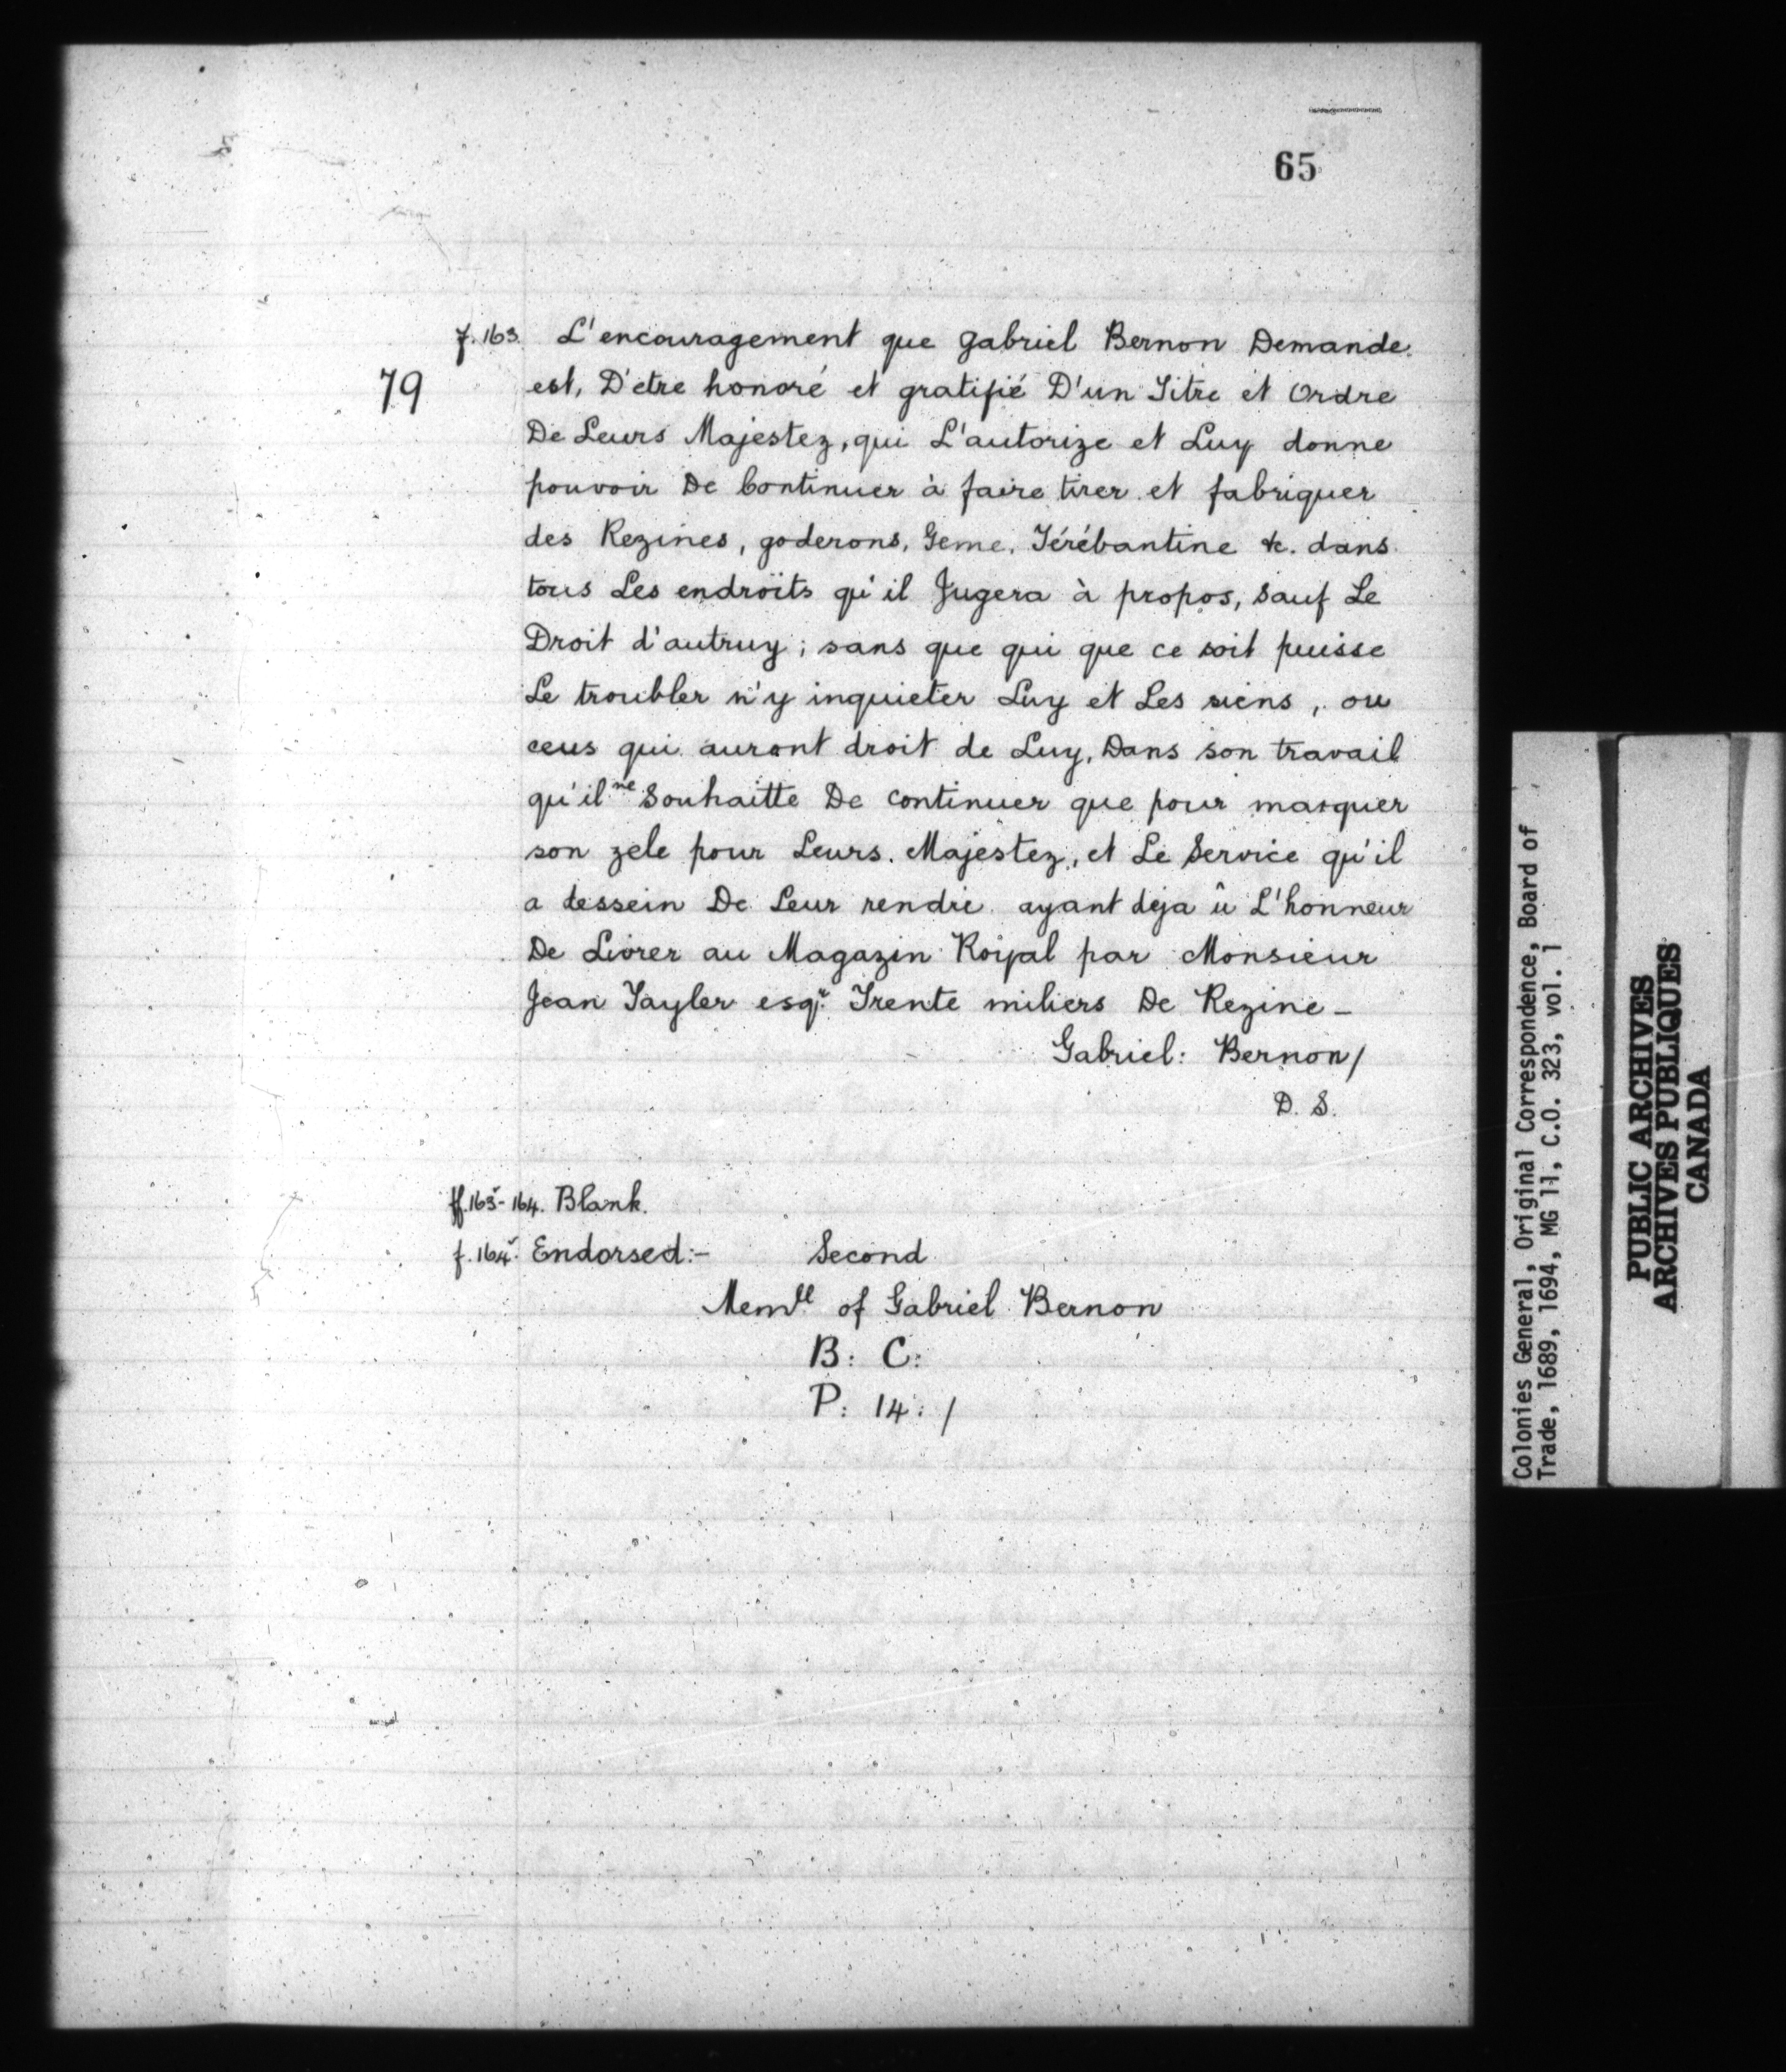 65
f. 163. L'encouragement que gabriel Bernon Demande.
79
est, D'etre honoré et gratifié D'un Titre et Ordre
De Leurs Majestez, qui L'autorize et Luy donne
pouvoir De Continuer à faire tirer et fabriquer
des Rezines, goderons, Geme, Térébantine &c. dans
tous Les endroits qu'il Jugera à propos, sauf Le
Droit d'autruy; sans que qui que ce soit puisse
Le troubler n'y inquieter Luy et Les siens, ou
ceus qui auront droit de Luy, Dans son travail
qu'il ne Souhaitte De continuer que pour marquer
son zele pour Leurs Majestez, et Le Service qu'il
a dessein De Leur rendre ayant deja û L'honneur
De Livrer au Magazin Royal par Monsieur
Jean Tayler esqr. Trente miliers De Rezine -
Gabriel: Bernon/
D. S.
ff. 163v-164. Blank.
f. 164v. Endorsed:- Second
Memll of Gabriel Bernon
B: C:
P: 14: /
Colonies General, Original Correspondence, Board of
Trade, 1689, 1694, MG 11, C.O. 323, vol. 1
PUBLIC ARCHIVES
ARCHIVES PUBLIQUES
CANADA